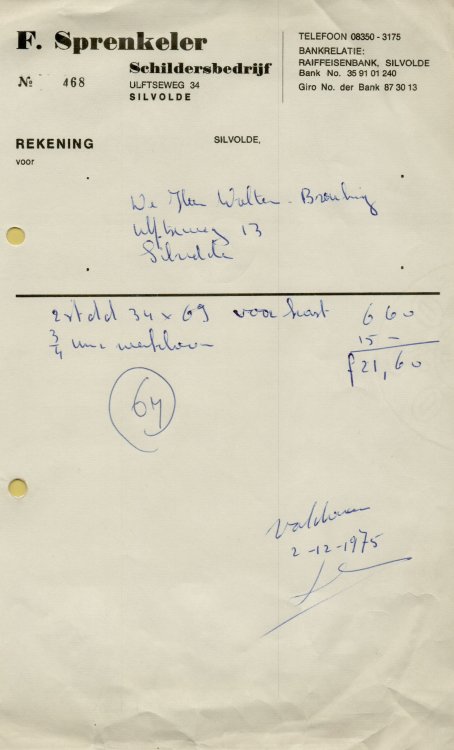 F. Sprenkeler
Schildersbedrijf
№ 468
ULFTSEWEG 34
SILVOLDE
TELEFOON 08350 - 3175
BANKRELATIE:
RAIFFEISENBANK, SILVOLDE
Bank No. 35 91 01 240
Giro No. der Bank 87 30 13
REKENING
SILVOLDE,
voor
De Heer Wolter
Ulftseweg 13
Silvolde
34 x 69 voor 6 60
3/4 uur werkloon 15 -
f 21,60
64
Voldaan
2-12-1975